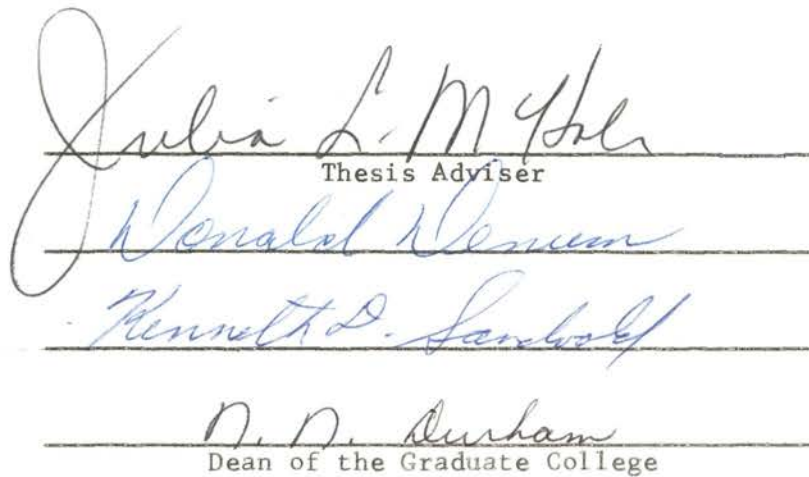 Julia L. McHale
Thesis Adviser
Donald
Kenneth D. Sandvold
N. N. Durham
Dean of the Graduate College